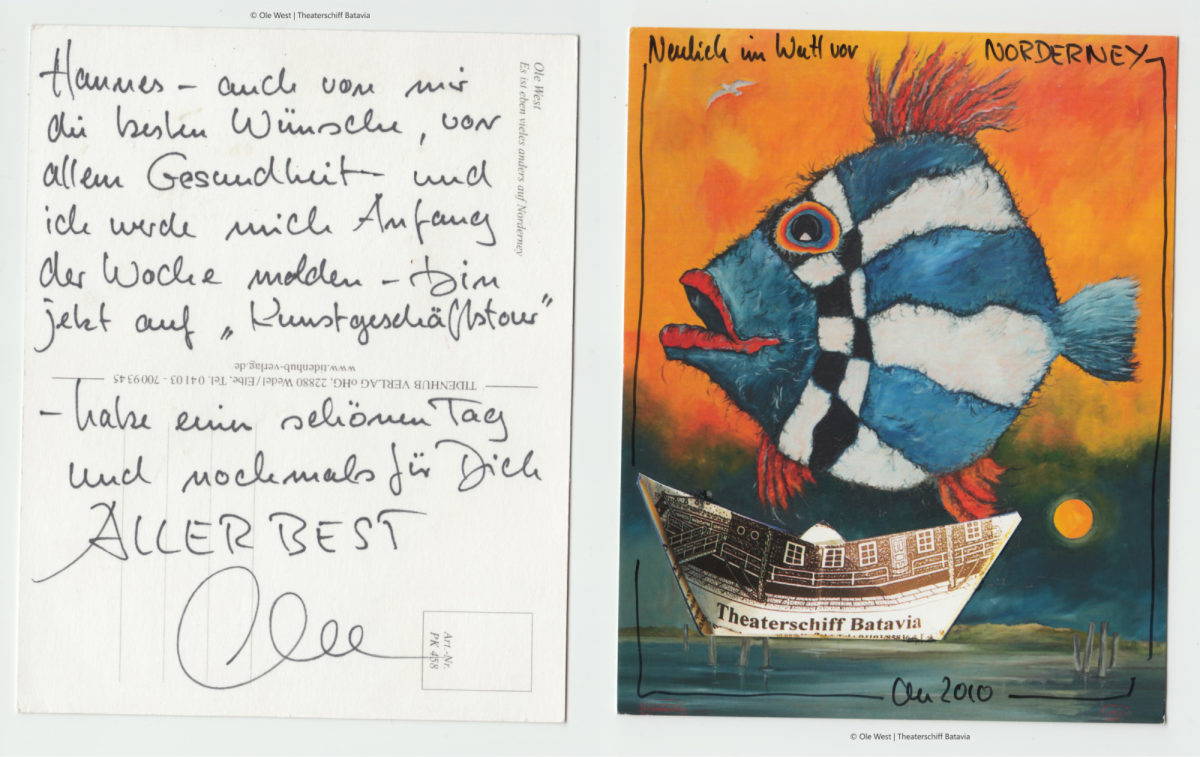 © Ole West | Theaterschiff Batavia
Hannes – auch von mir
die besten Wünsche, vor
allem Gesundheit – und
ich werde mich Anfang
der Woche melden – bin
jetzt auf „Kunstgeschäftstour"
– habe einen schönen Tag
und nochmals für Dich
ALLERBEST
Ole
Ole West
Es ist eben vieles anders auf Norderney
TIDENHUB VERLAG oHG, 22880 Wedel / Elbe, Tel. 0 41 03 - 700 93 45
www.tidenhub-verlag.de
Art.-Nr.
PK 458
Neulich im Watt vor NORDERNEY
Theaterschiff Batavia
Ole 2010
© Ole West | Theaterschiff Batavia